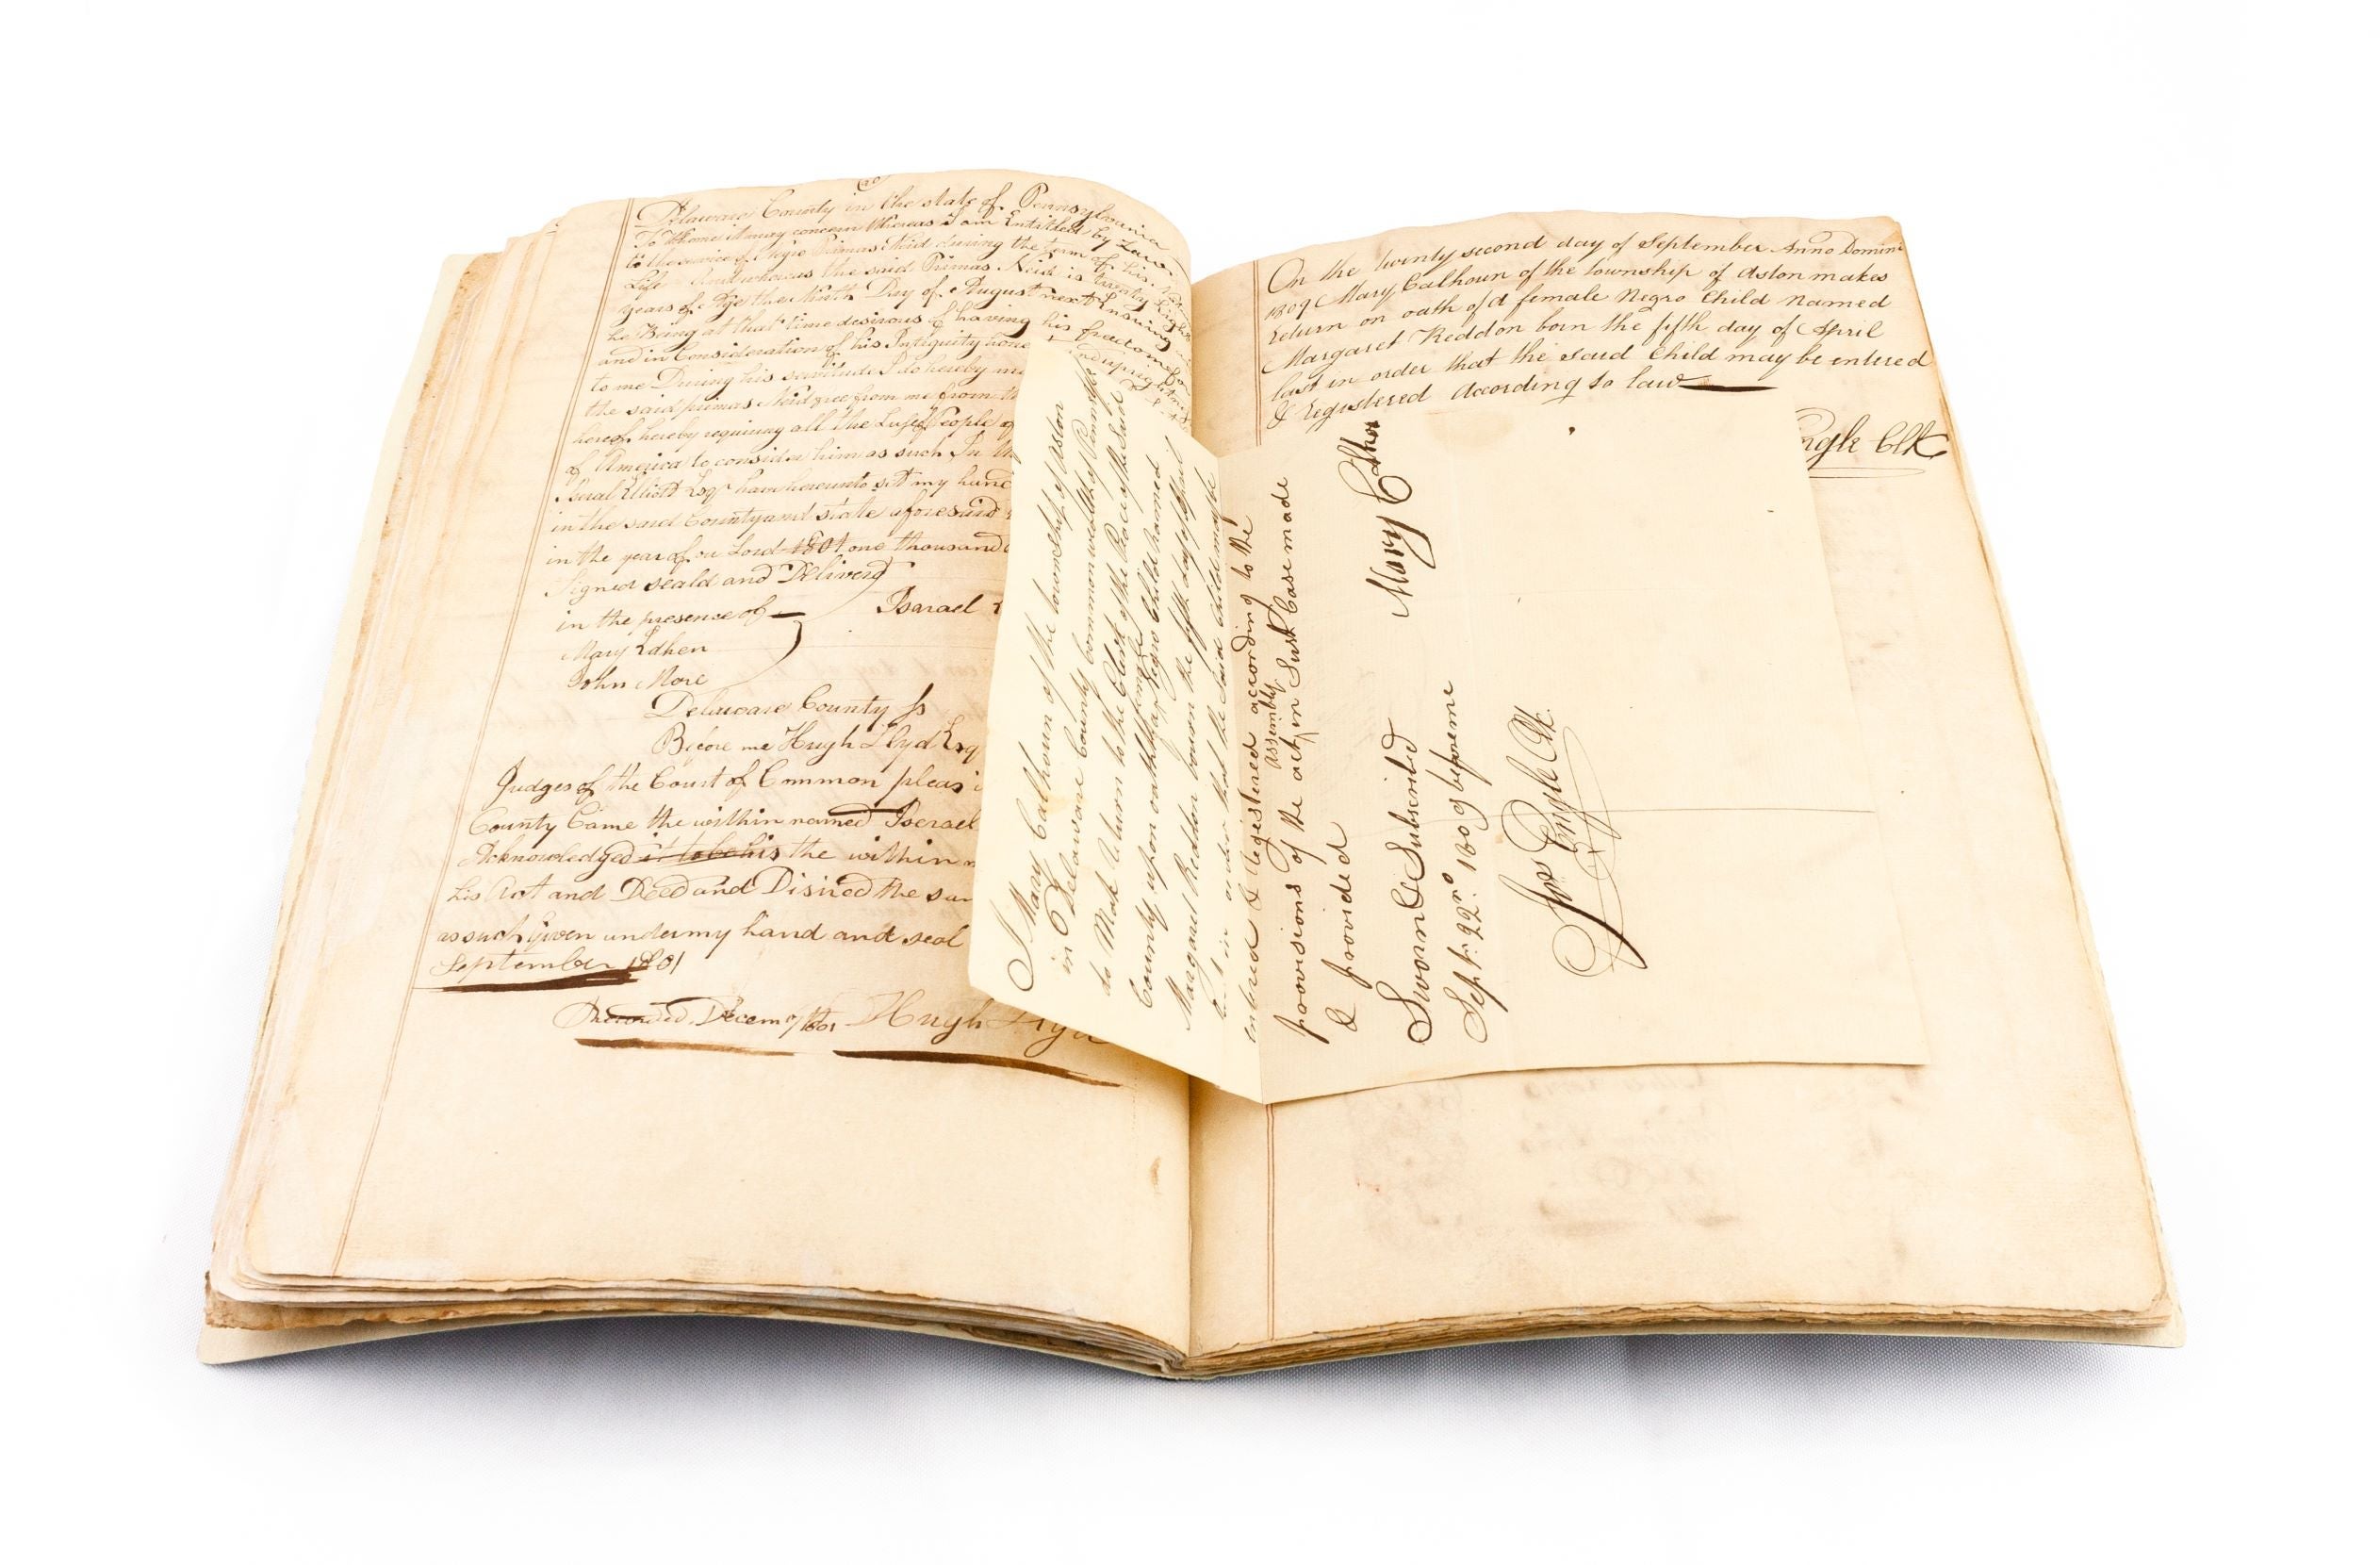 Delaware County in the state of Pennsylvania
To Whome it may concern Whereas I am Entitled by Law
to the service of Negro Primas Neid during the term of his
Life And whereas the said Primas Neid is twenty Eight
years of Age the Ninth Day of August next Ensuing
he Being at that time desirous of having his freedom
and in Consideration of his Integuity
to me During his servitude I do hereby
the said primas Neid free from me from
hereof hereby requiring all the People
of America to consider him as such In
Elliott Esqr have hereunto set my hand
in the said County and state aforesaid
in the year of ou Lord 1801 one thousand
Signed seald and Deliverd
in the presence of
Israel
Mary
John More
Delaware County ss
Before me Hugh Llyd Esq
Judges of the Court of Common pleas
County Came the within named Iserael
Acknowledged it to be his the within
his Act and Deed and Disired the
as such Given under my hand and seal
September 1801
Recorded Decemr 1801 Hugh
I Mary Calhoun of the township of Aston
in Delaware County commonwealth of
do Make return to the Clerk of the Peace of the said
County upon oath that a female Negro Child named
Margaret Reddon bourn the fifth day of April
last in order that the said Child may be
entered & registered according to the
provisions of the act assembly in such Case made
& provided
Mary
Sworn & Subscribed
Sept. 22nd 1809 before me
Jos Engle Clk.
On the twenty second day of September Anno Domini
1809 Mary Calhoun of the township of Aston makes
return on oath of a female Negro Child Named
Margaret Reddon born the fifth day of April
last in order that the said Child may be entered
& registered according to law
ngle Clk